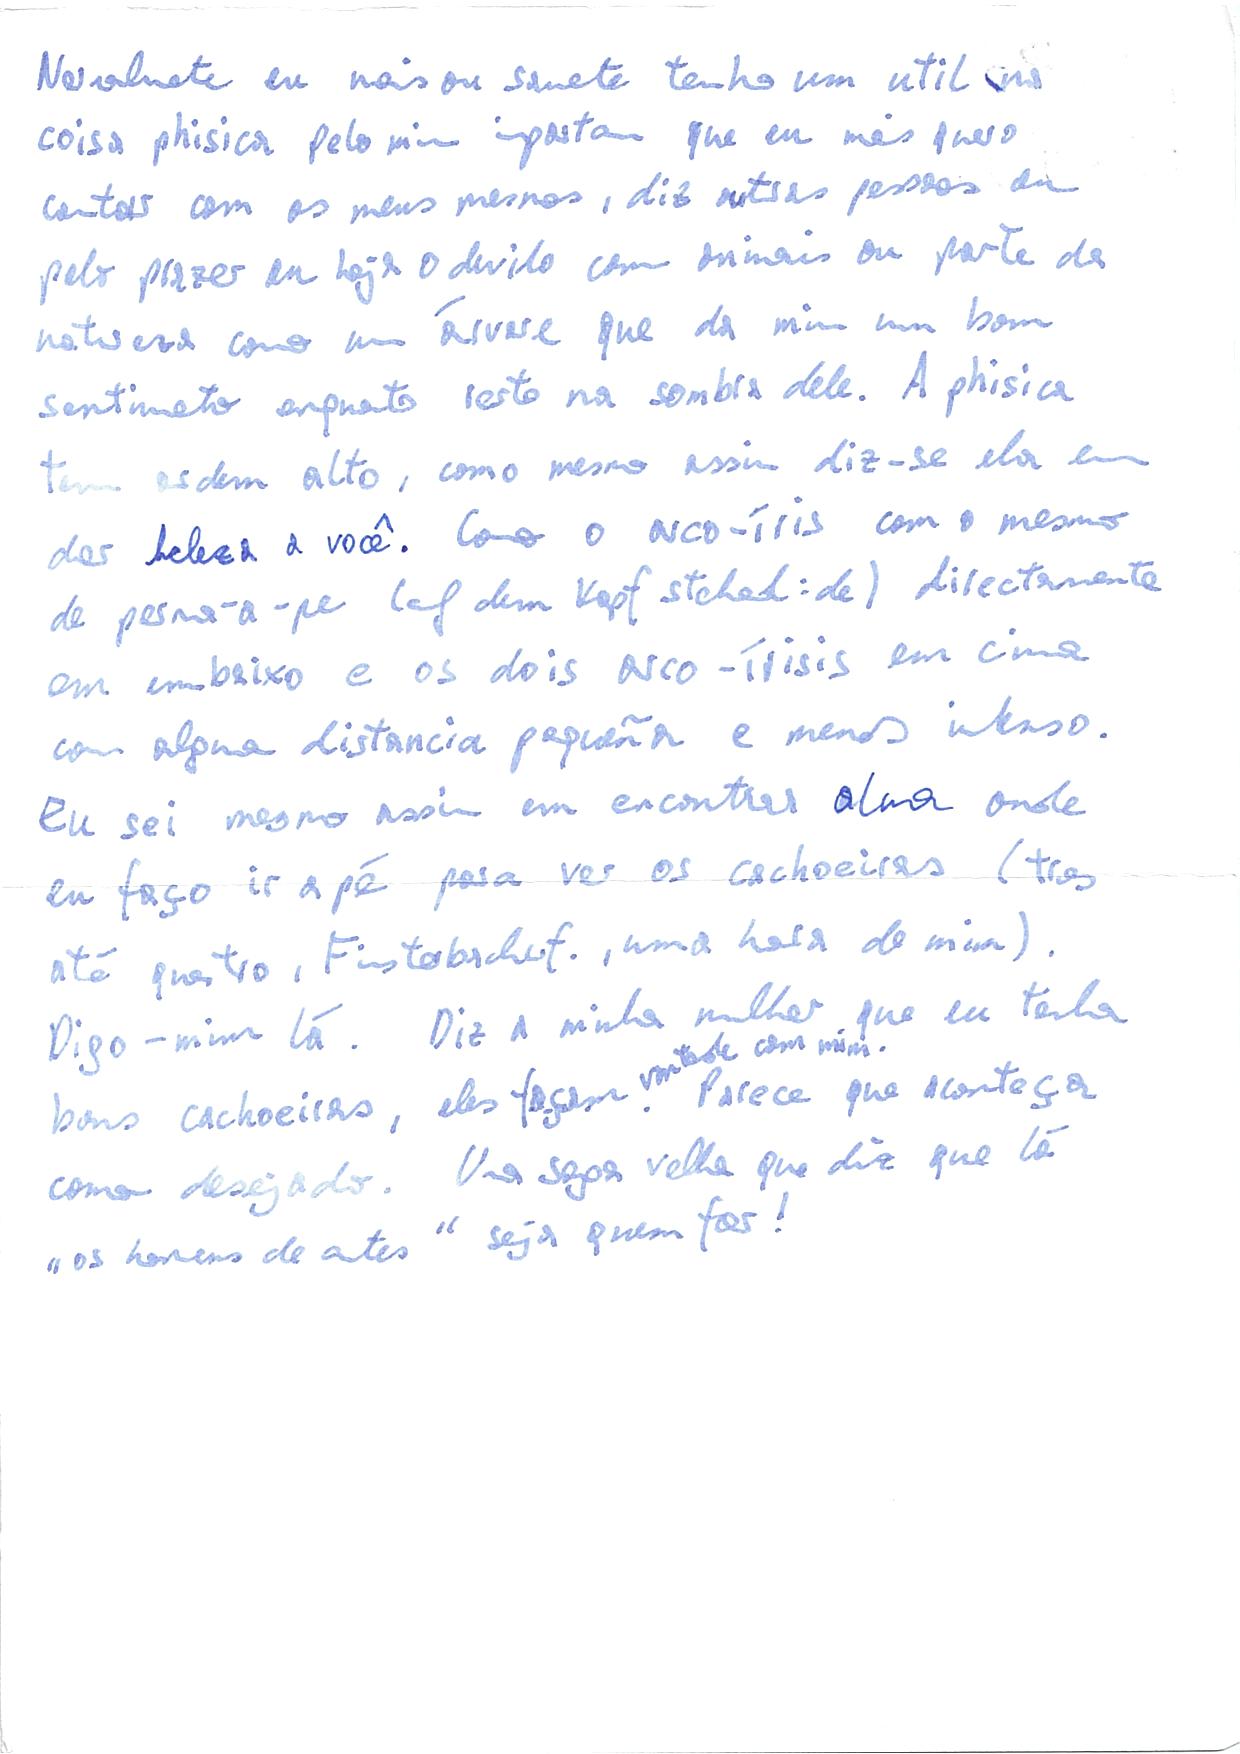 eu mais ou tenho um util na
coisa phisica pelo mim que eu más quero
contar com os meus mesmos, diz outras pessoas em
pelo prazer eu haja o devido com animais ou parte da
natureza como um árvore que da mim um bom
sentimeto enquato resto na sombra dele. A phisica
tem ordem alto, como mesmo assim diz-se ela em
dar beleza a você. Como o arco-íris com o mesmo
de perna-a-pe (auf dem Kopf stehend:de) directamente
em embaixo e os dois arco-írisis em cima
com alguma distancia pequeña e menos intenso.
Eu sei mesmo assim em encontrar alma onde
eu faço ir a pé para ver os cachoeiras (tres
até quatro, , uma hora de mim).
Digo-mim lá. Diz a minha mulher que eu tenha
vontade com mim.
bons cachoeiras, eles façam! Parece que aconteça
como desejado. Uma saga velha que diz que lá
„os homens de artes“ seja quem for!